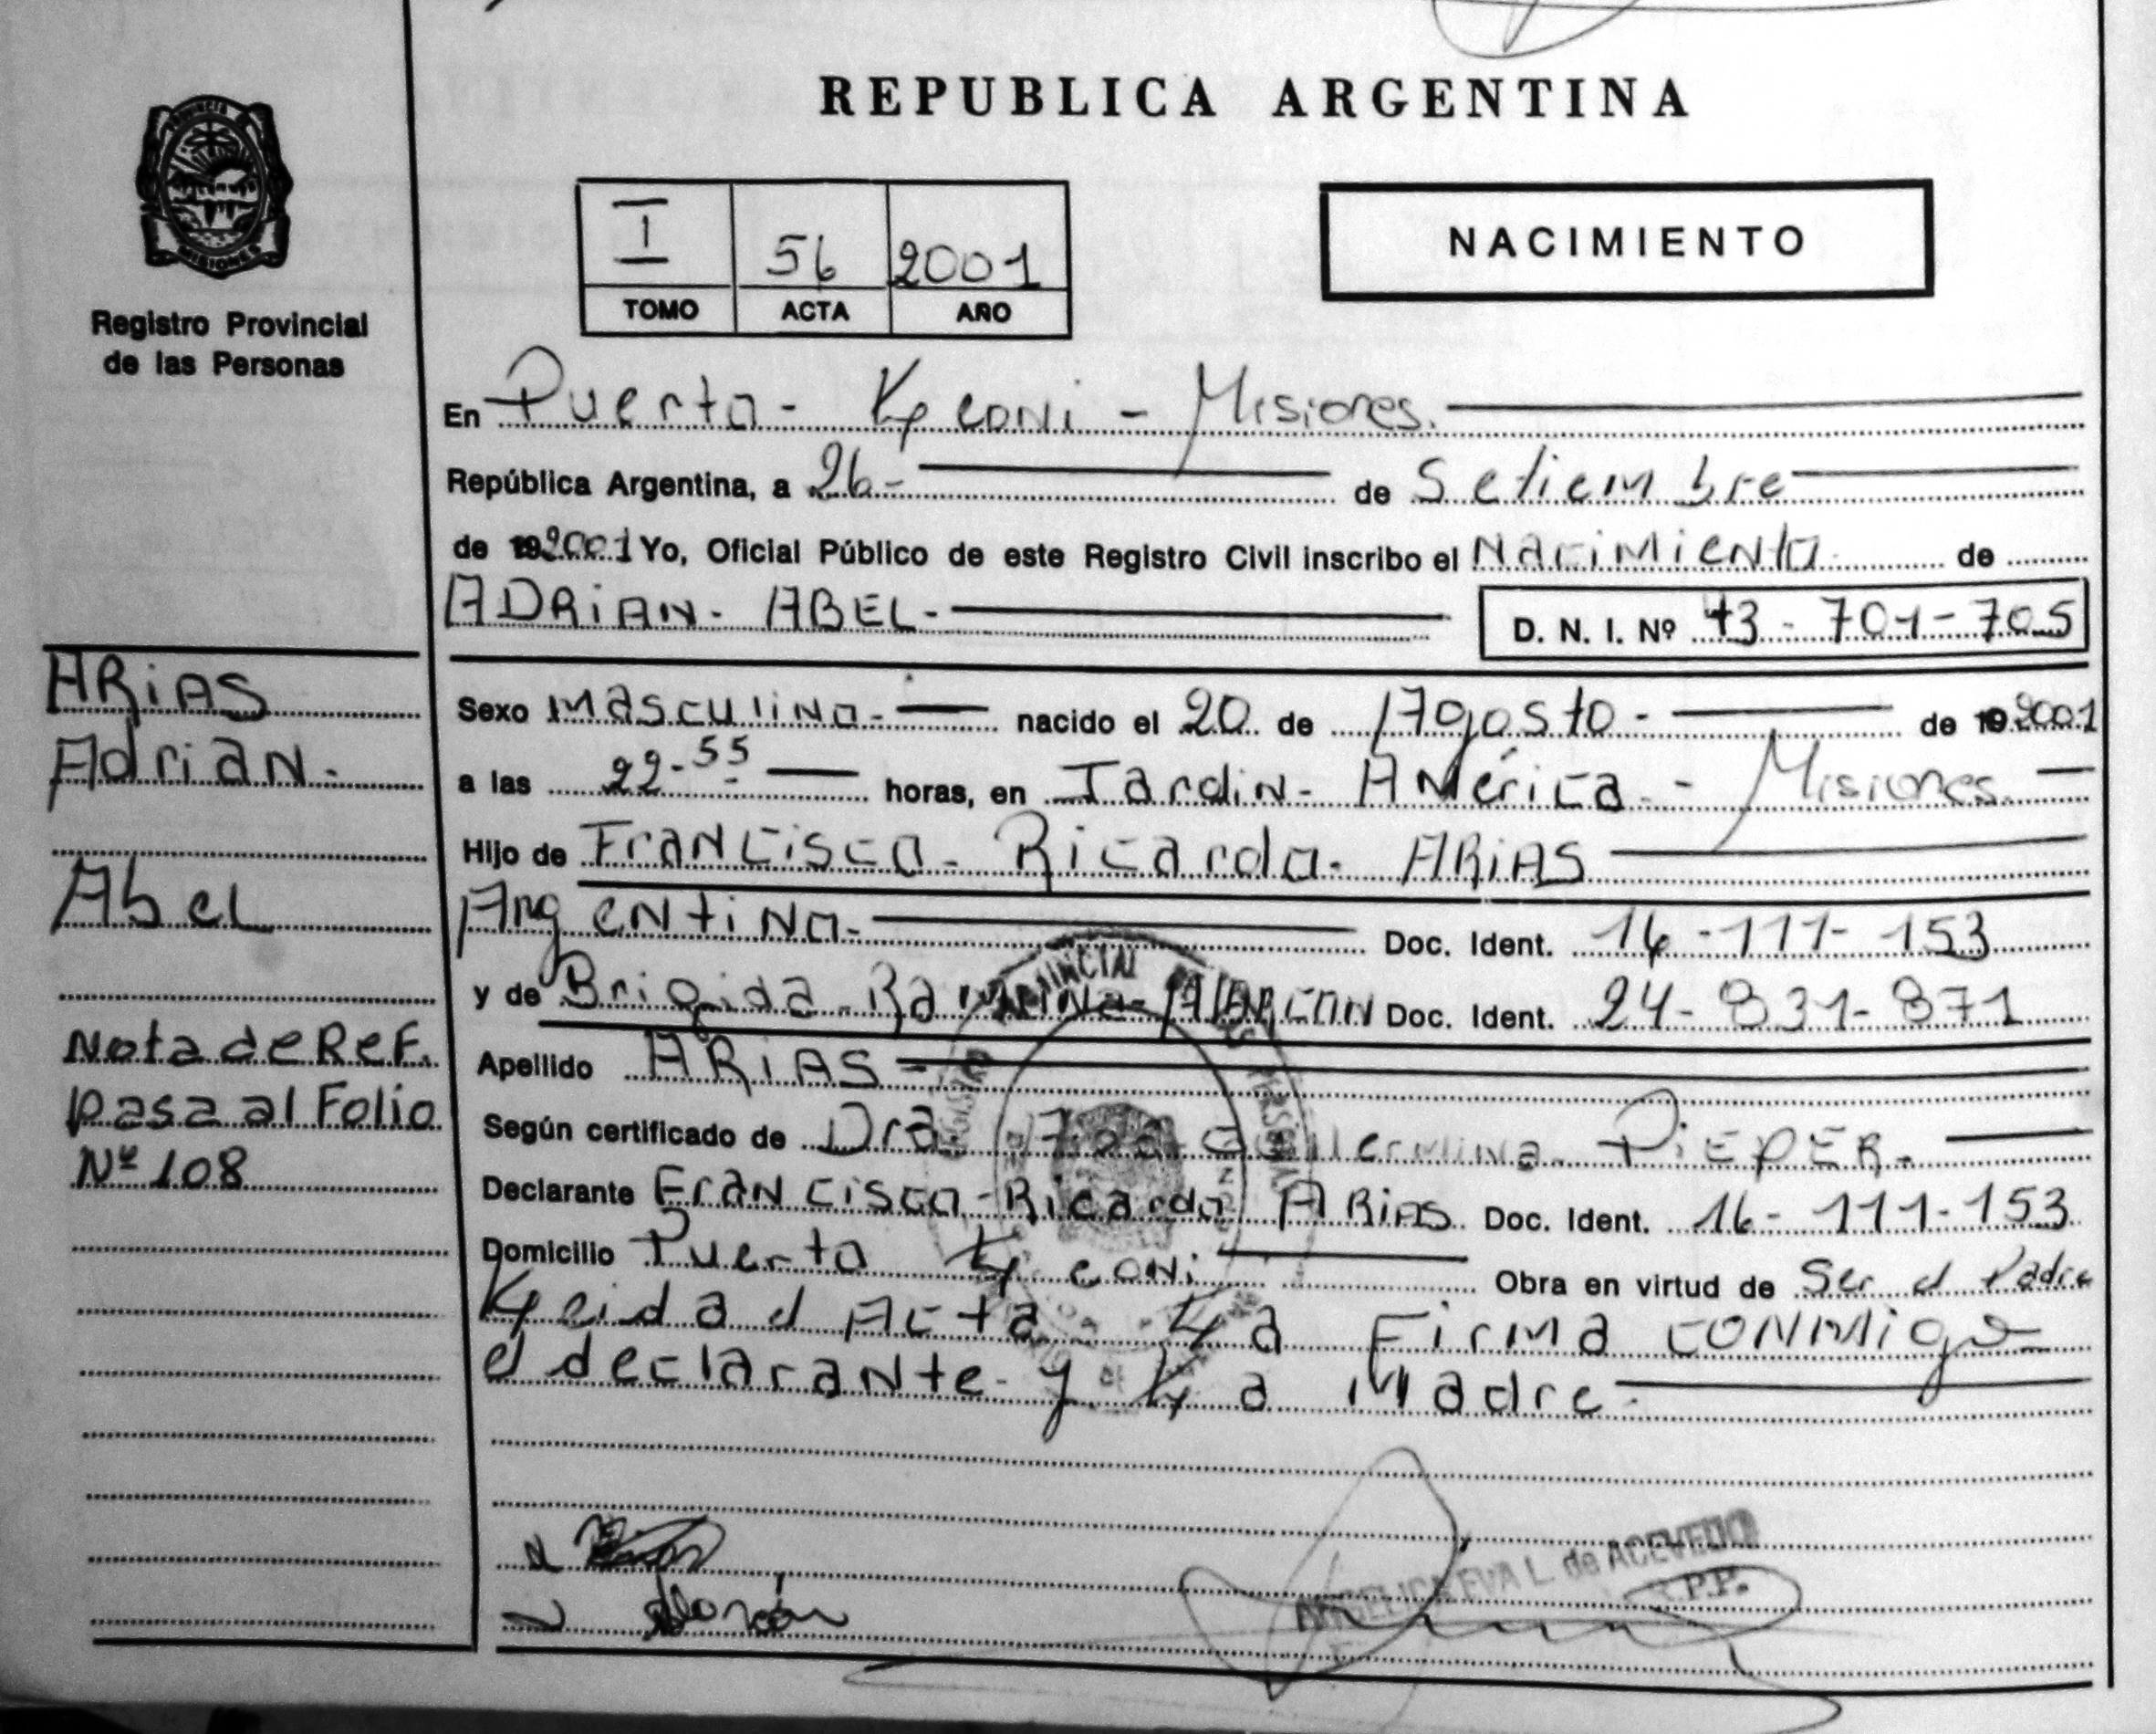 REPUBLICA ARGENTINA
PROVINCIA
MISIONES
Registro Provincial
de las Personas
I 56 2001
TOMO ACTA AÑO
NACIMIENTO
En Puerto - Leoni - Misiones.
República Argentina, a 26- de Setiembre
de 19 2001 Yo, Oficial Público de este Registro Civil inscribo el Nacimiento de
ADRIAN - ABEL - D. N. I. Nº 43 - 701 - 705
Sexo Masculino - nacido el 20 de Agosto - de 19 2001
a las 22-55 horas, en Jardin - América - Misiones.
Hijo de Francisco - Ricardo - ARIAS
Argentino - Doc. Ident. 16 - 111 - 153
y de Brigida - Ramona - ALARCON Doc. Ident. 24 - 831 - 871
Apellido ARIAS
Según certificado de Dra. Guillermina - PiEPER -
Declarante Francisco - Ricardo ARIAS Doc. Ident. 16 - 111 - 153
Domicilio Puerto Leoni Obra en virtud de Ser el Padre
Leida el Acta - La Firma conmigo
el declarante y La Madre -
ARIAS
Adrian -
Abel
Nota de Ref.
pasa al Folio
Nº 108
ANGELICA EVA L. de ACEVEDO
R.P.P.